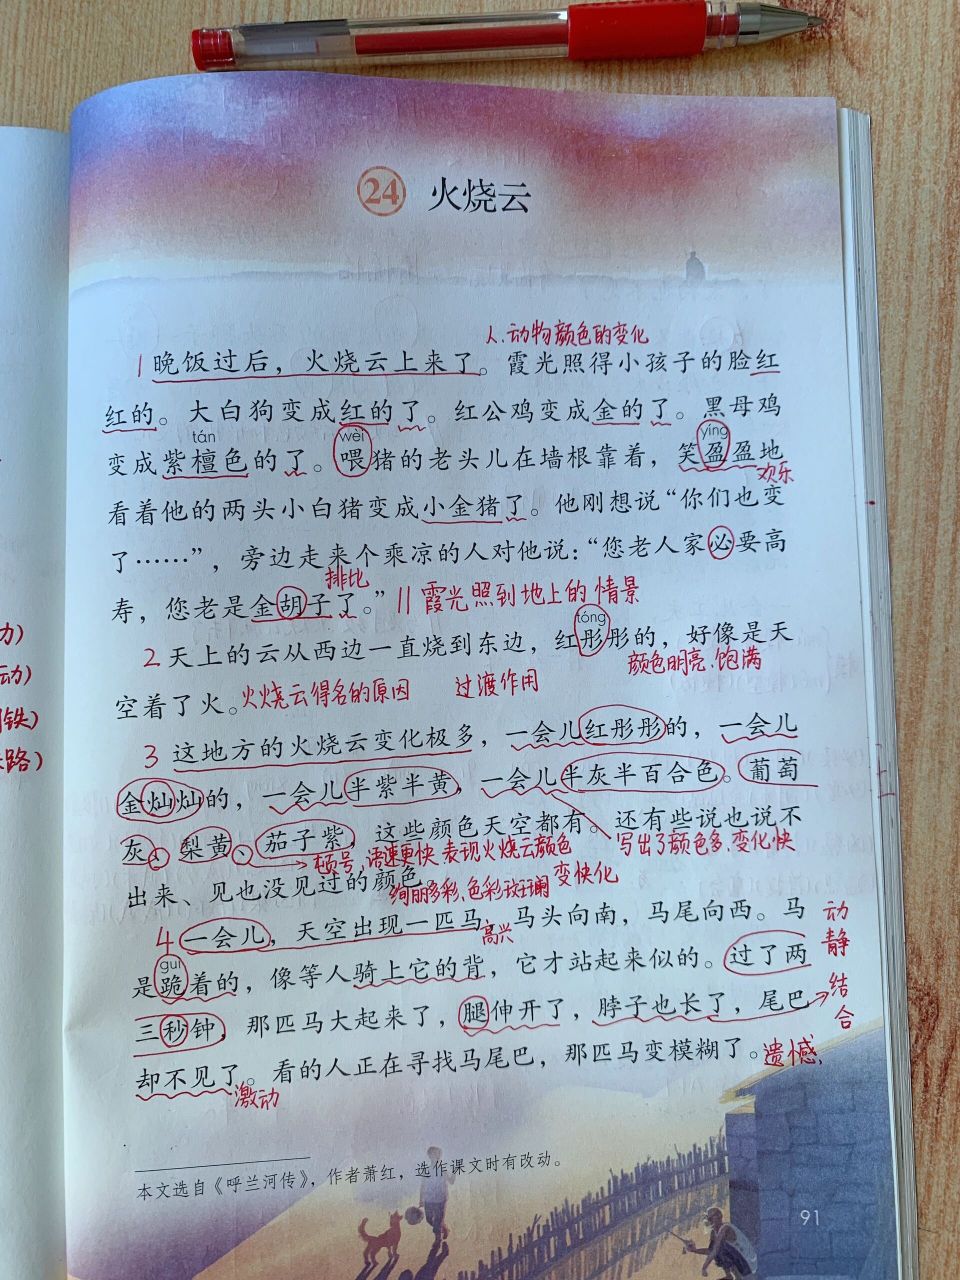 24 火烧云
人.动物颜色的变化
1晚饭过后，火烧云上来了。霞光照得小孩子的脸红
红的。大白狗变成红的了。红公鸡变成金的了。黑母鸡
tán wèi yíng
变成紫檀色的了。喂猪的老头儿在墙根靠着，笑盈盈地
欢乐
看着他的两头小白猪变成小金猪了。他刚想说“你们也变
了……”，旁边走来个乘凉的人对他说：“您老人家必要高
排比
寿，您老是金胡子了。”11霞光照到地上的情景
tóng
2天上的云从西边一直烧到东边，红彤彤的，好像是天
颜色明亮.饱满
空着了火。火烧云得名的原因 过渡作用
3这地方的火烧云变化极多，一会儿红彤彤的，一会儿
金灿灿的，一会儿半紫半黄，一会儿半灰半百合色。葡萄
灰、梨黄、茄子紫，这些颜色天空都有。还有些说也说不
顿号，语速更快 表现火烧云颜色 写出了颜色多.变化快
出来、见也没见过的颜色
绚丽多彩、色彩斑斓 变快化
4一会儿，天空出现一匹马，马头向南，马尾向西。马
高兴 动静结合
guì
是跪着的，像等人骑上它的背，它才站起来似的。过了两
三秒钟，那匹马大起来了，腿伸开了，脖子也长了，尾巴
却不见了。看的人正在寻找马尾巴，那匹马变模糊了。遗憾
激动
本文选自《呼兰河传》，作者萧红，选作课文时有改动。
91
力)
动)
铁)
路)